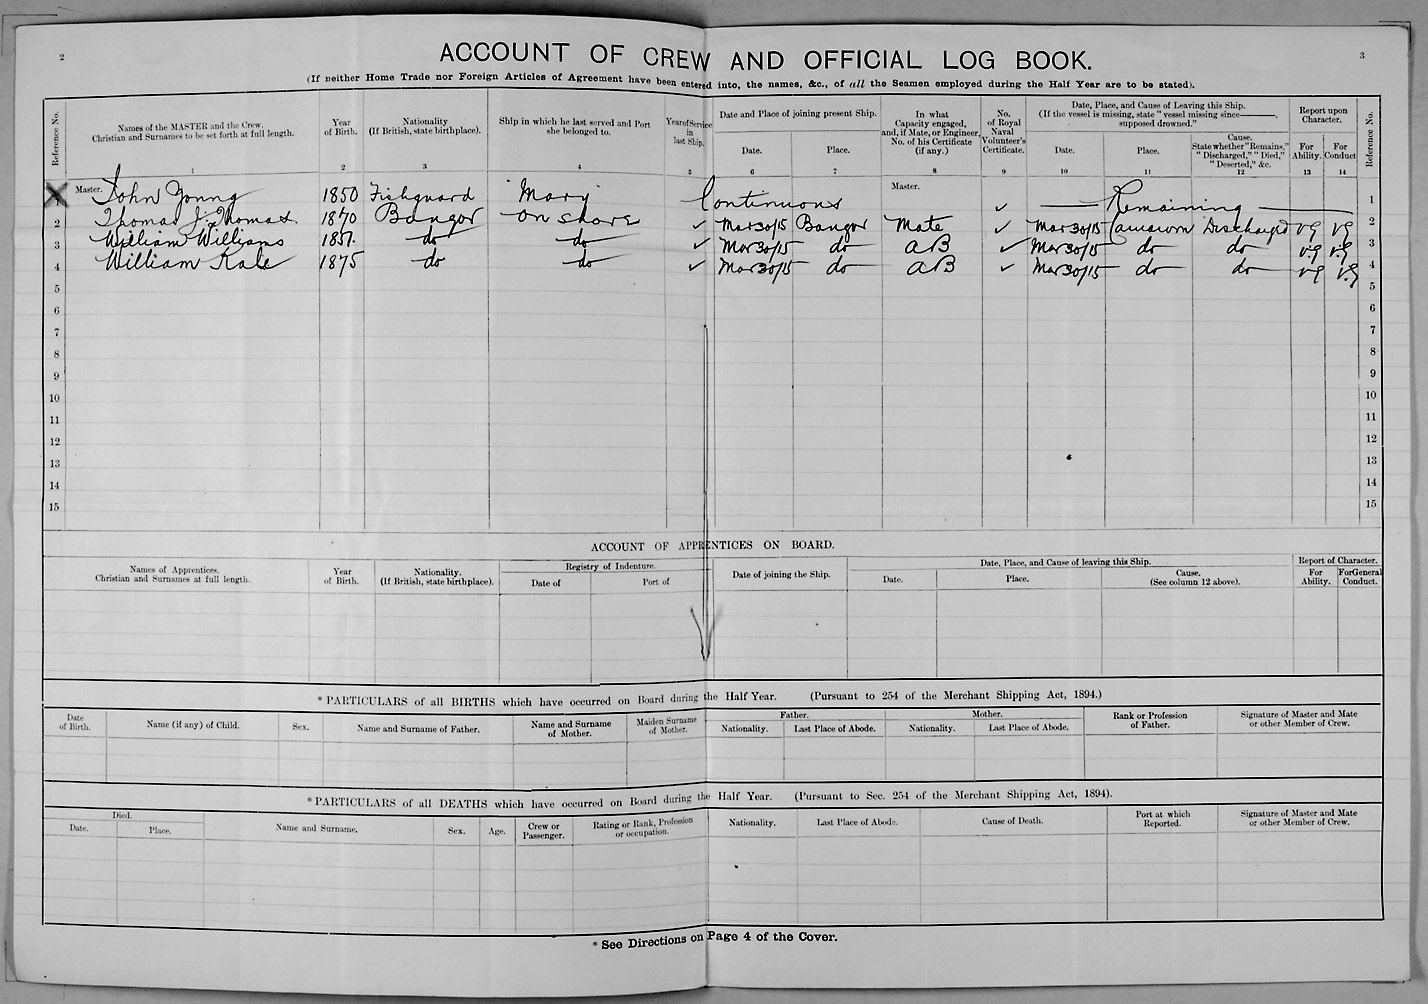 2
3
ACCOUNT OF CREW AND OFFICIAL LOG BOOK.
(If neither Home Trade nor Foreign Articles of Agreement have been entered into, the names, &c., of all the Seamen employed during the Half Year are to be stated).
Reference No.
Names of the MASTER and the Crew. Christian and Surnames to be set forth at full length. 1
Year of Birth. 2
Nationality. (If British, state birthplace). 3
Ship in which he last served and Port she belonged to. 4
Year of Service in last Ship. 5
Date and Place of joining present Ship.
Date. 6
Place. 7
In what Capacity engaged, and, if Mate, or Engineer, No. of his Certificate (if any.) 8
No. of Royal Naval Volunteer's Certificate. 9
Date, Place, and Cause of Leaving this Ship. (If the vessel is missing, state "vessel missing since———, supposed drowned."
Date. 10
Place. 11
Cause. State whether "Remains," "Discharged," "Died," "Deserted," &c. 12
Report upon Character.
For Ability. 13
For Conduct 14
Reference No.
1 Master. John Young 1850 Fishguard Mary Continuous Master. ✓ — Remaining — 1
2 Thomas J. Thomas 1870 Bangor on shore ✓ Mar 30/15 Bangor Mate ✓ Mar 30/15 Discharged vg vg 2
3 William Williams do do ✓ Mar 30/15 do AB ✓ Mar 30/15 do do vg vg 3
4 William Kale 1875 do do ✓ Mar 30/15 do AB ✓ Mar 30/15 do do vg vg 4
5 5
6 6
7 7
8 8
9 9
10 10
11 11
12 12
13 13
14 14
15 15
ACCOUNT OF APPRENTICES ON BOARD.
Names of Apprentices. Christian and Surnames at full length.
Year of Birth.
Nationality. (If British, state birthplace).
Registry of Indenture.
Date of
Port of
Date of joining the Ship.
Date, Place, and Cause of leaving this Ship.
Date.
Place.
Cause. (See column 12 above).
Report of Character.
For Ability.
For General Conduct.
* PARTICULARS of all BIRTHS which have occurred on Board during the Half Year. (Pursuant to 254 of the Merchant Shipping Act, 1894.)
Date of Birth.
Name (if any) of Child.
Sex.
Name and Surname of Father.
Name and Surname of Mother.
Maiden Surname of Mother.
Father.
Nationality.
Last Place of Abode.
Mother.
Nationality.
Last Place of Abode.
Rank or Profession of Father.
Signature of Master and Mate or other Member of Crew.
* PARTICULARS of all DEATHS which have occurred on Board during the Half Year. (Pursuant to Sec. 254 of the Merchant Shipping Act, 1894).
Died.
Date.
Place.
Name and Surname.
Sex.
Age.
Crew or Passenger.
Rating or Rank, Profession or occupation.
Nationality.
Last Place of Abode.
Cause of Death.
Port at which Reported.
Signature of Master and Mate or other Member of Crew.
* See Directions on Page 4 of the Cover.